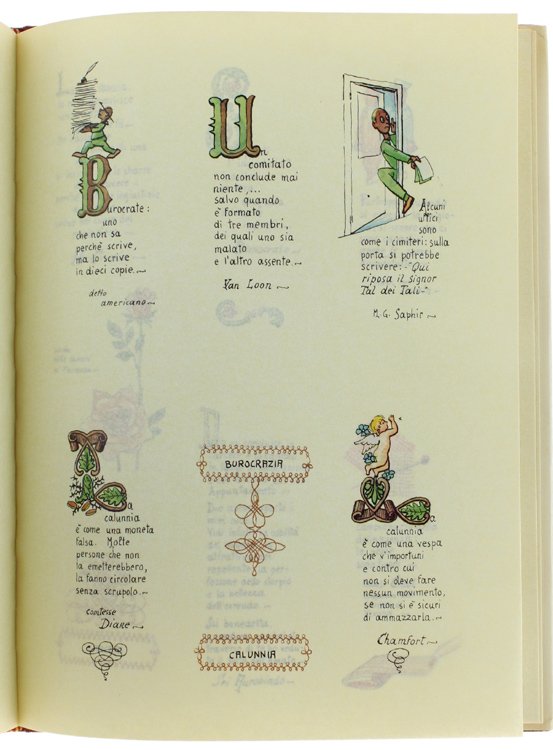 Burocrate:
uno
che non sa
perchè scrive,
ma lo scrive
in dieci copie.
detto
americano
Un
comitato
non conclude mai
niente,...
salvo quando
è formato
di tre membri,
dei quali uno sia
malato
e l'altro assente.
Van Loon
Alcuni
uffici
sono
come i cimiteri: sulla
porta si potrebbe
scrivere: -"Qui
riposa il signor
Tal dei Tali-"
M.G. Saphir
La
calunnia
è come una moneta
falsa. Molte
persone che non
la emetterebbero,
la fanno circolare
senza scrupolo.
comtesse
Diane
BUROCRAZIA
CALUNNIA
La
calunnia
è come una vespa
che v'importuni
e contro cui
non si deve fare
nessun movimento,
se non si è sicuri
di ammazzarla.
Chamfort